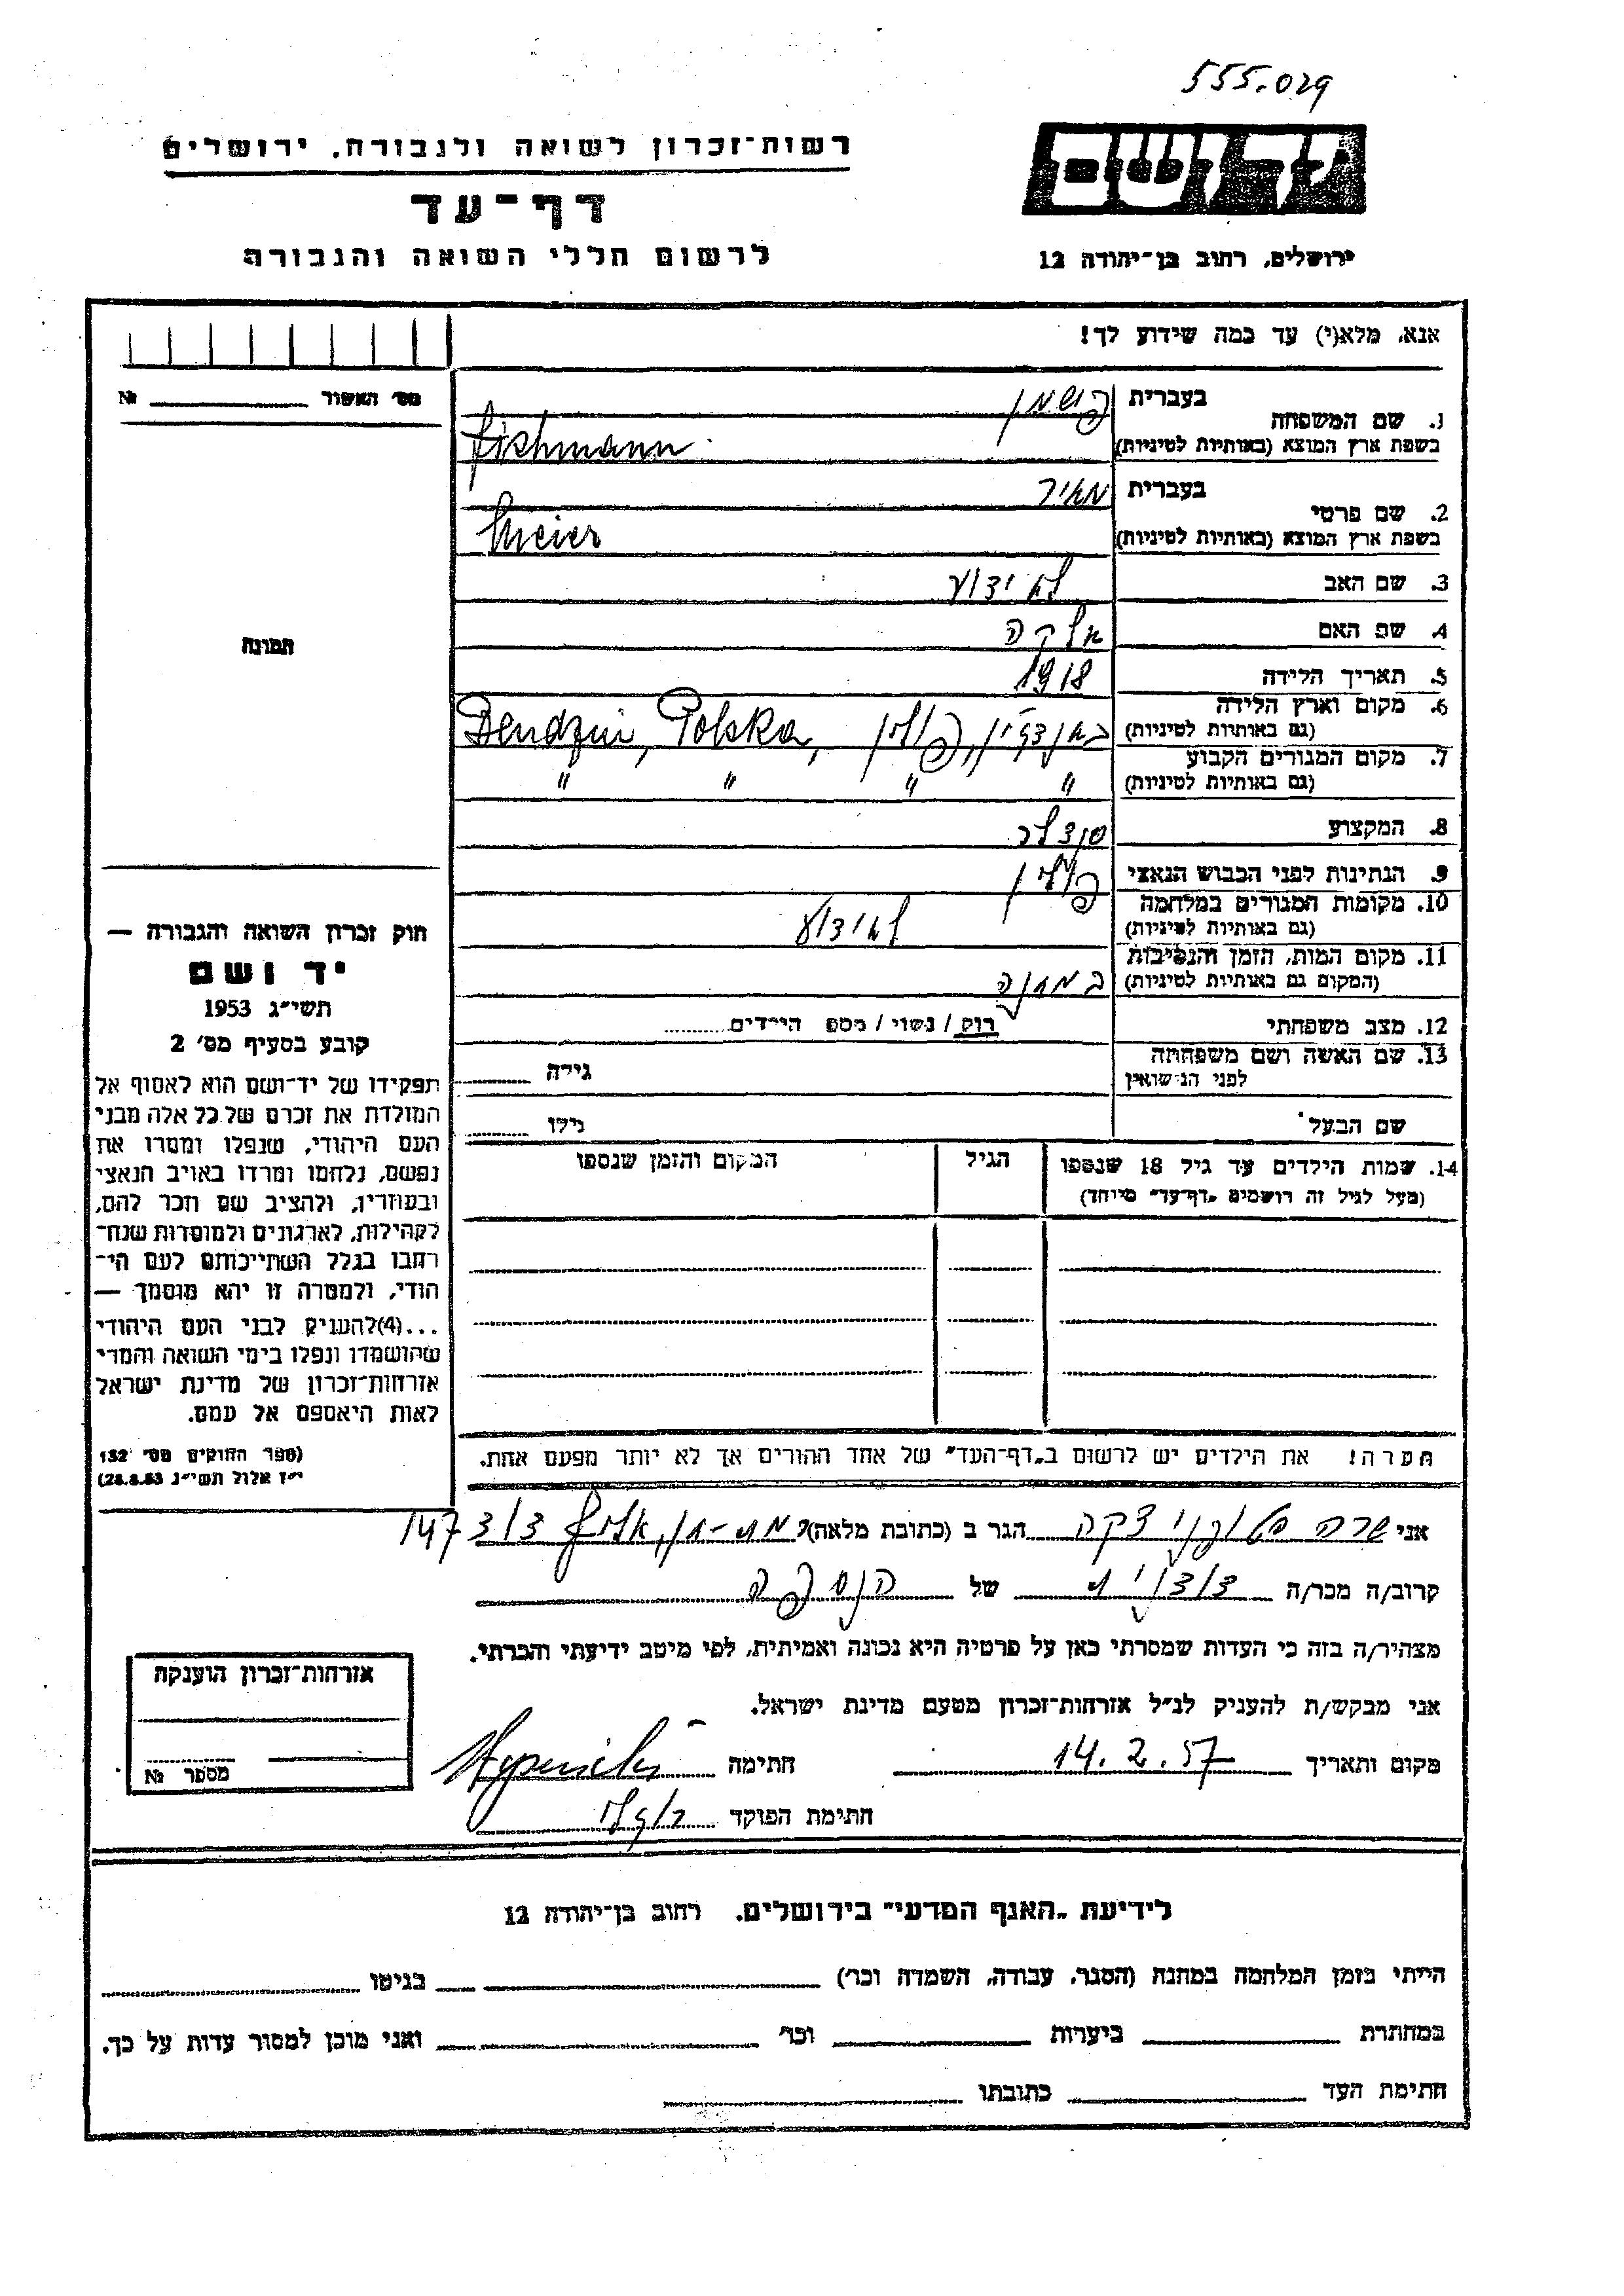 555.029
יד ושם
רשות־זכרון לשואה ולגבורה, ירושלים
דף־עד
לרשום חללי השואה והגבורה
ירושלים, רחוב בן־יהודה 12
אנא, מלא(י) עד כמה שידוע לך!
מס׳ האשור № 
1. שם המשפחה
בעברית פישמן
בשפת ארץ המוצא (באותיות לטיניות) Fishmann
2. שם פרטי
בעברית מאיר
בשפת ארץ המוצא (באותיות לטיניות) Meier
3. שם האב לא ידוע
4. שם האם אלקה
5. תאריך הלידה 1918
6. מקום וארץ הלידה
(גם באותיות לטיניות) בנדזין, פולין, Bendzin, Polska
7. מקום המגורים הקבוע
(גם באותיות לטיניות) " " " "
8. המקצוע סנדלר
9. הנתינות לפני הכבוש הנאצי פולין
10. מקומות המגורים במלחמה
(גם באותיות לטיניות) לא ידוע
11. מקום המות, הזמן והנסיבות
(המקום גם באותיות לטיניות) במחנה
12. מצב משפחתי רוק / נשוי / מספ הילדים
13. שם האשה ושם משפחתה
לפני הנישואין גילה
שם הבעל גילו
14. שמות הילדים עד גיל 18 שנספו
(מעל לגיל זה רושמים „דף־עד״ מיוחד)
הגיל
המקום והזמן שנספו
תמונה
חוק זכרון השואה והגבורה —
יד ושם
תשי״ג 1953
קובע בסעיף מס׳ 2
תפקידו של יד־ושם הוא לאסוף אל
המולדת את זכרם של כל אלה מבני
העם היהודי, שנפלו ומסרו את
נפשם, נלחמו ומרדו באויב הנאצי
ובעוזריו, ולהציב שם וזכר להם,
לקהילות, לארגונים ולמוסדות שנח־
רבו בגלל השתייכותם לעם הי־
הודי, ולמטרה זו יהא מוסמך —
...(4)להעניק לבני העם היהודי
שהושמדו ונפלו בימי השואה והמרי
אזרחות־זכרון של מדינת ישראל
לאות היאספם אל עמם.
(ספר החוקים מס׳ 132
י״ז אלול תשי״ג 28.8.53)
הערה! את הילדים יש לרשום ב„דף־העד״ של אחד ההורים אך לא יותר מפעם אחת.
אני שרה הגר ב (כתובת מלאה) רמת-גן, 3/3 147
קרוב/ה מכר/ה של הנספה
מצהיר/ה בזה כי העדות שמסרתי כאן על פרטיה היא נכונה ואמיתית, לפי מיטב ידיעתי והכרתי.
אני מבקש/ת להעניק לנ״ל אזרחות־זכרון מטעם מדינת ישראל.
מקום ותאריך 14.2.57 חתימה
חתימת הפוקד
אזרחות־זכרון הוענקה
מספר №
לידיעת „האגף המדעי״ בירושלים, רחוב בן־יהודה 12
הייתי בזמן המלחמה במחנה (הסגר, עבודה, השמדה וכו׳) בגיטו
במחתרת ביערות וכו׳ ואני מוכן למסור עדות על כך.
חתימת העד כתובתו